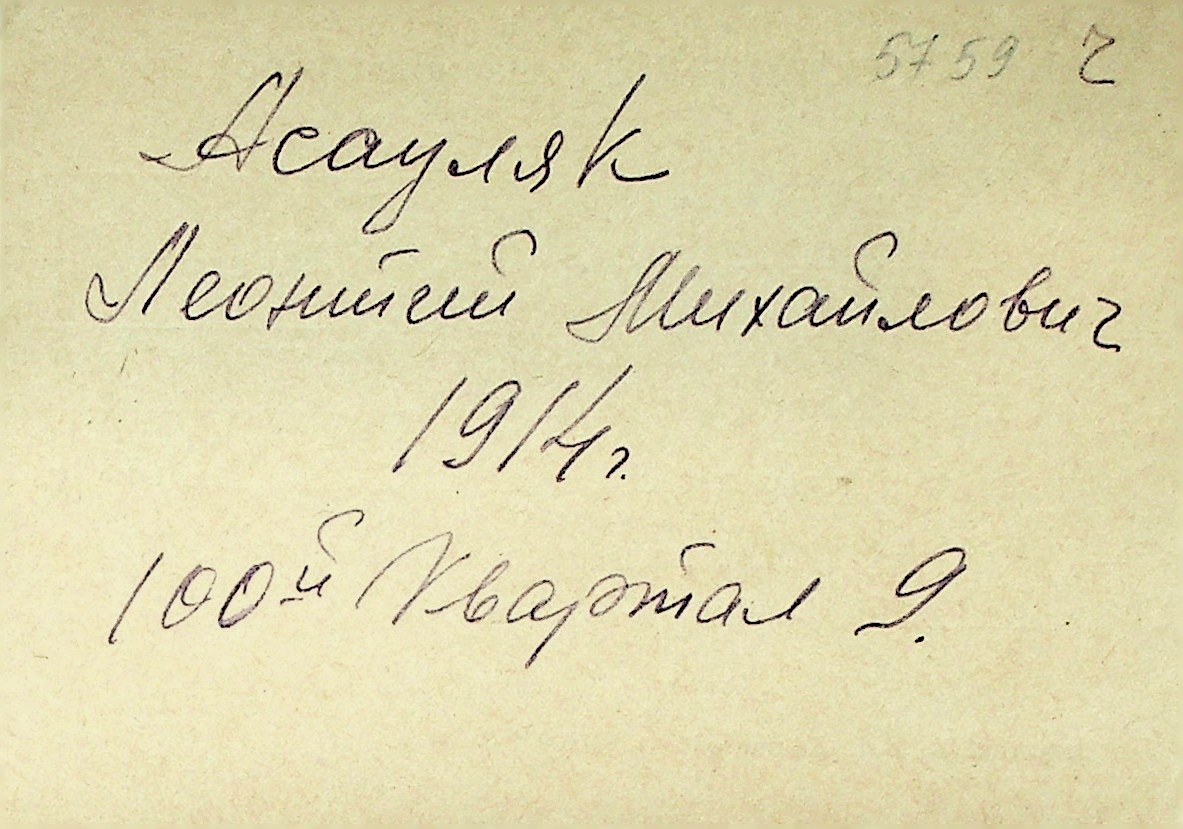 5759 ч
Асауляк
Леонтий Михайлович
1914г.
100й Квартал 9.